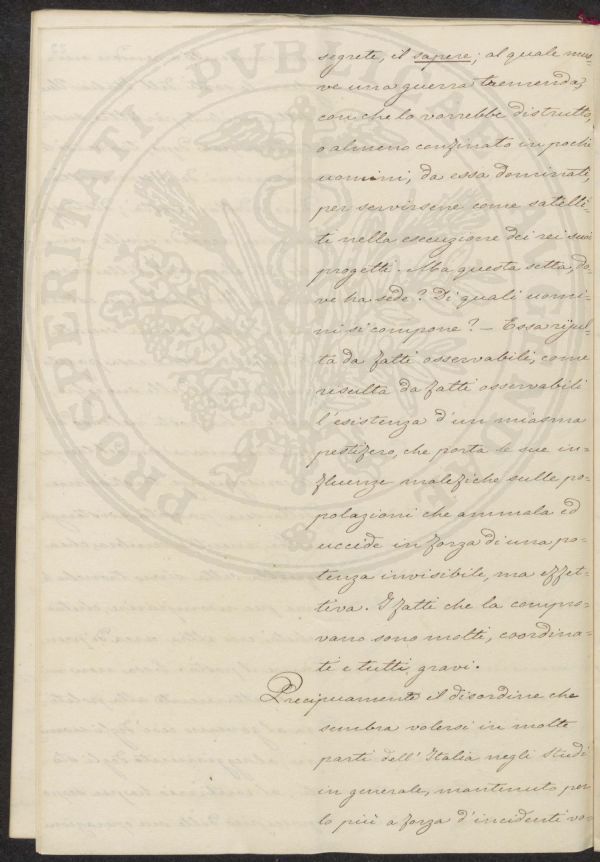 segrete, il sapere; al quale muo-
ve una guerra tremenda,
con che lo vorrebbe distrutto,
o almeno confinato in pochi
uomini, da essa dominati,
per servirsene come satelli-
ti nella esecuzione dei rei suoi
progetti. Ma questa setta, do-
ve ha sede? Di quali uomi-
ni si compone? — Essa risul-
ta da fatti osservabili, come
risulta da fatti osservabili
l'esistenza d'un miasma
pestifero, che porta le sue in-
fluenze malefiche sulle po-
polazioni che ammala ed
uccide in forza di una po-
tenza invisibile, ma effet-
tiva. I fatti che la compro-
vano sono molti, coordina-
ti e tutti gravi.
Precipuamente il disordine che
sembra volersi in molte
parti dell'Italia negli studi
in generale, mantenuto per
lo più a forza d'incidenti vo-
PROSPERITATI PUBLICAE AUGENDAE